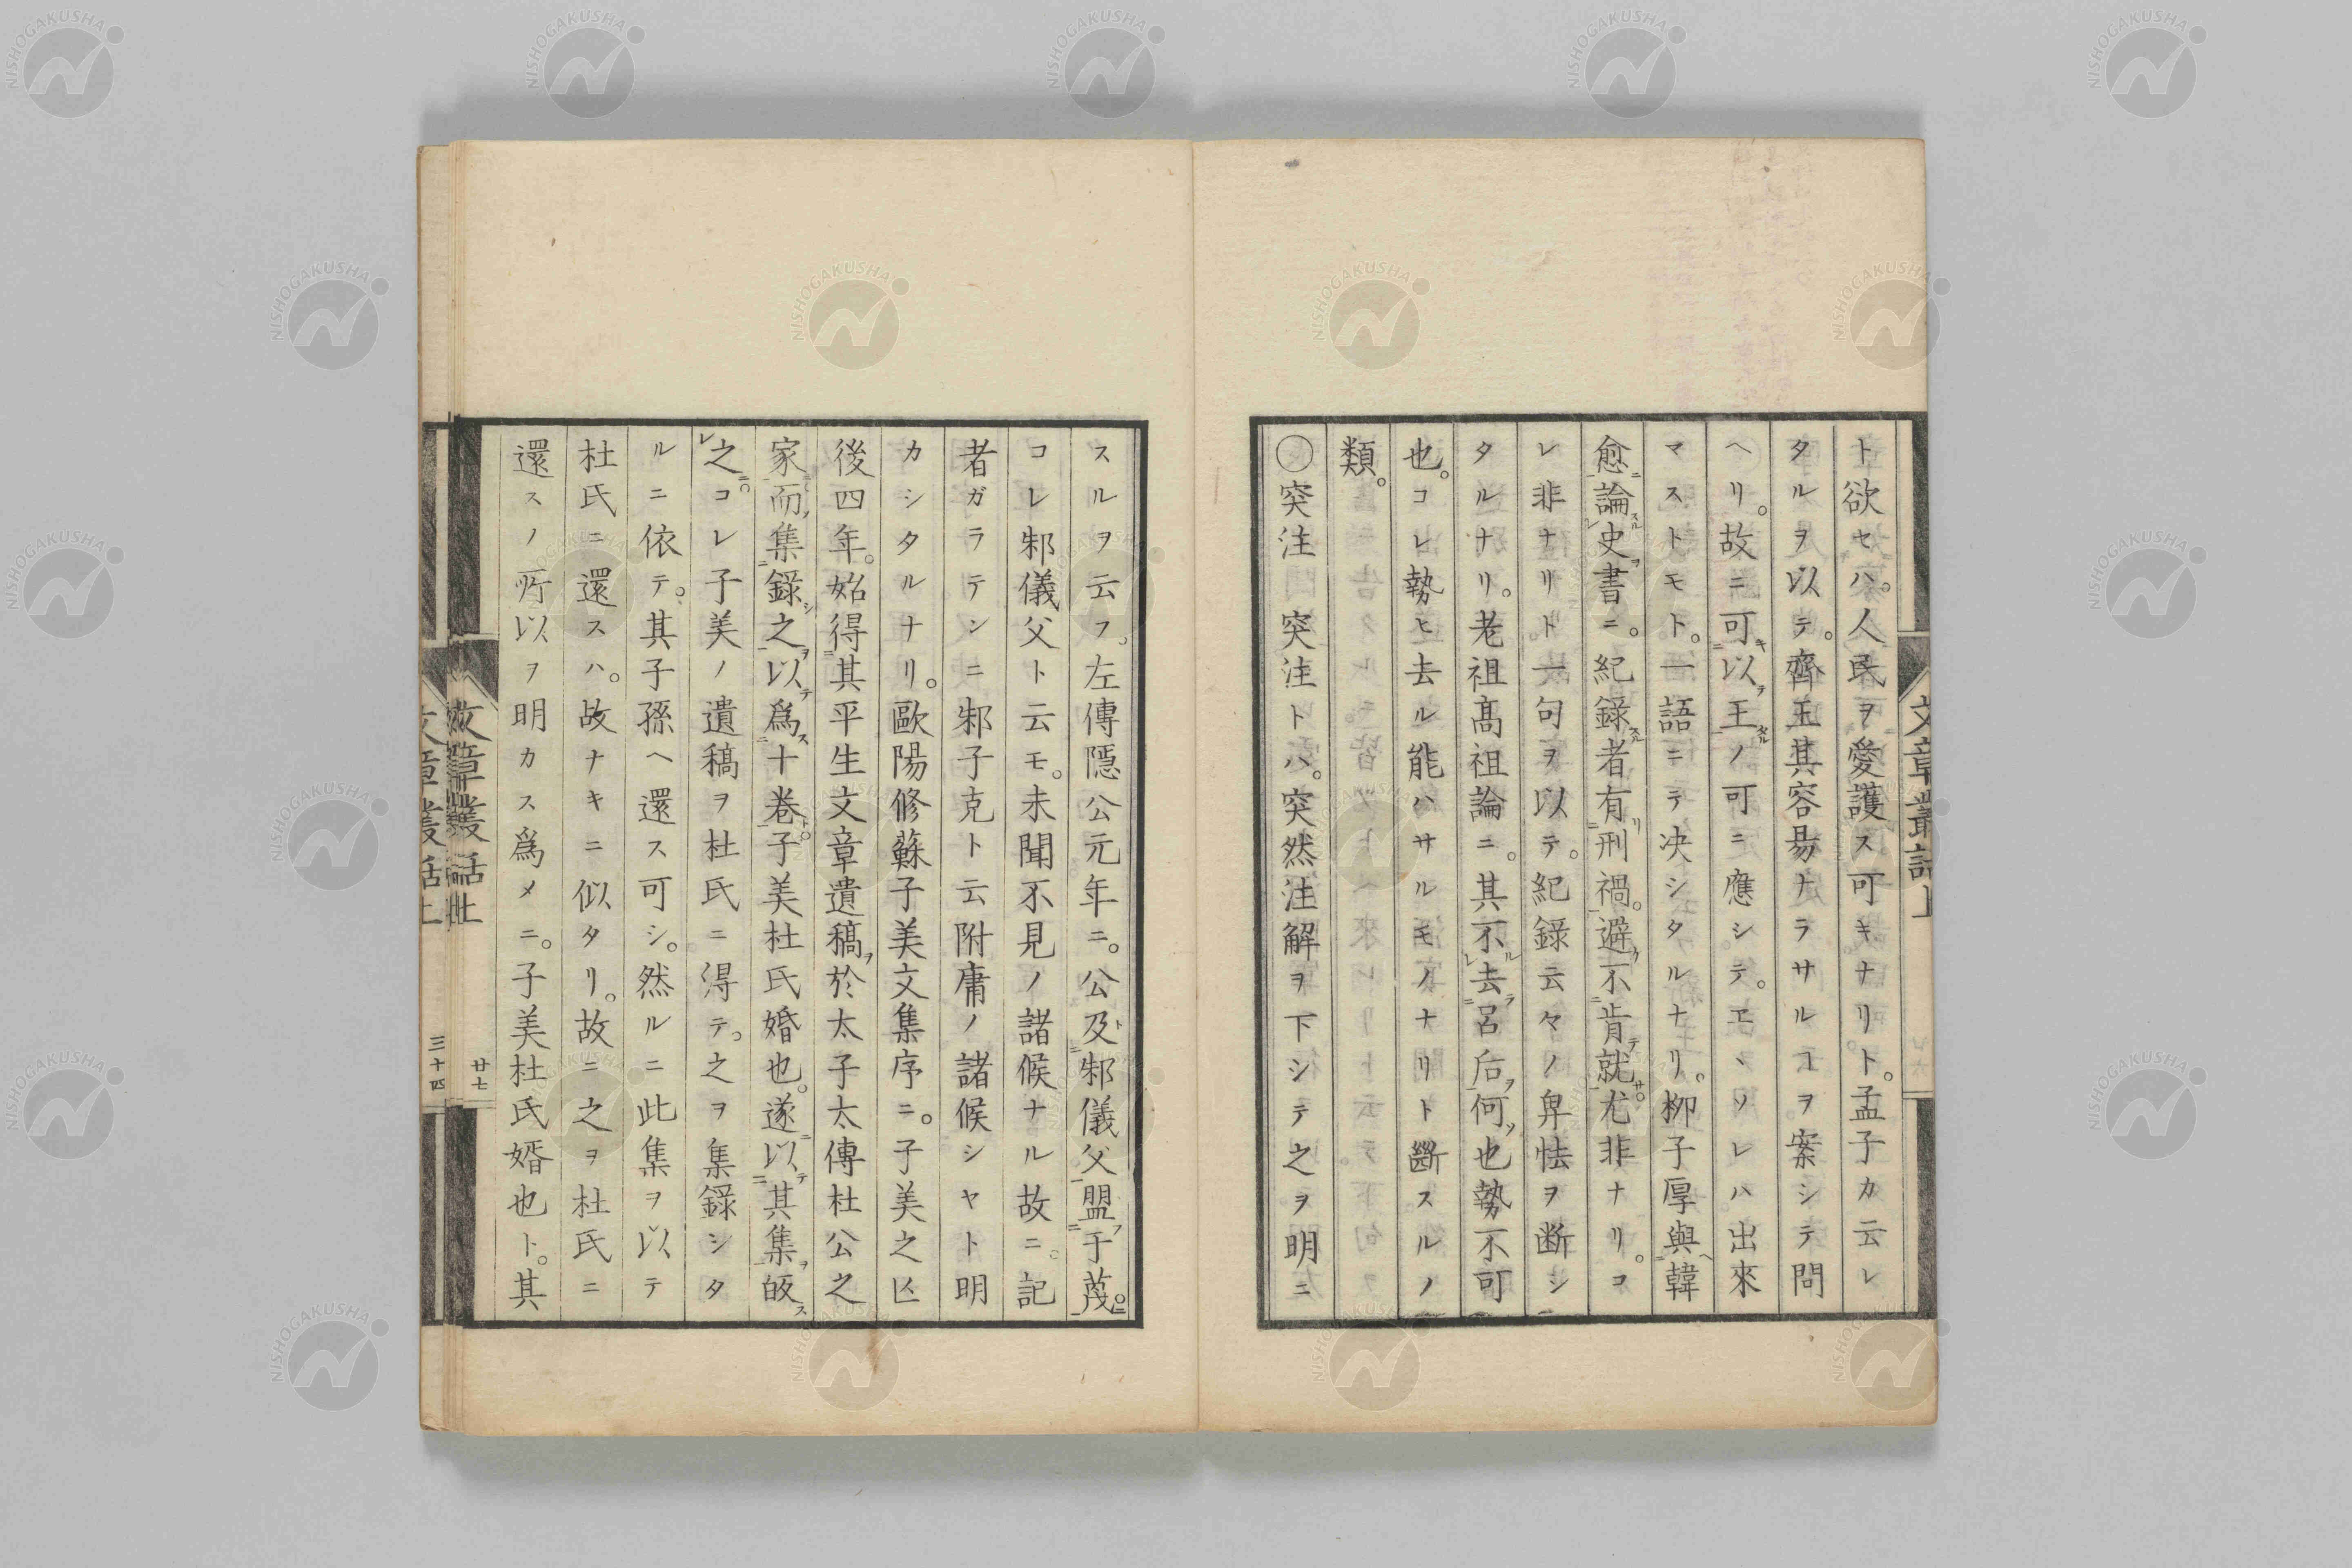 ト欲セハ。人民ヲ愛護ス可キナリト。孟子カ云レ
タルヲ以テ。齊王其容易ナラサルヿヲ案シテ問
ヘリ。故ニ可以王ノ可ニ應シテ。エヽソレハ出來
マストモト。一語ニテ决シタルナリ。柳子厚與韓
愈論史書ニ。紀錄者有刑禍。避不肯就。尤非ナリ。コ
レ非ナリト。一句ヲ以テ。紀錄云々ノ卑怯ヲ断シ
タルナリ。老祖髙祖論ニ。其不去呂后何也勢不可
也。コレ勢ヒ去ル能ハサルモノナリト斷スルノ
類。
○突注 突注トハ。突然注解ヲ下シテ之ヲ明ニ
スルヲ云フ。左傳隱公元年ニ。公及邾儀父盟于蔑。
コレ邾儀父ト云モ。未聞不見ノ諸候ナル故ニ。記
者ガラテンニ邾子克ト云附庸ノ諸候シヤト明
カシタルナリ。歐陽修蘇子美文集序ニ。子美之亾
後四年。始得其平生文章遺稿於太子太傳杜公之
家而集錄之以爲十卷。子美杜氏婚也。遂以其集皈
之。コレ子美ノ遺稿ヲ杜氏ニ得テ。之ヲ集錄シタ
ルニ依テ。其子孫ヘ還ス可シ。然ルニ此集ヲ以テ
杜氏ニ還スハ。故ナキニ似タリ。故ニ之ヲ杜氏ニ
還スノ所以ヲ明カス爲メニ。子美杜氏婿也ト。其
文章叢話上
廿七
三十四
NISHOGAKUSHA